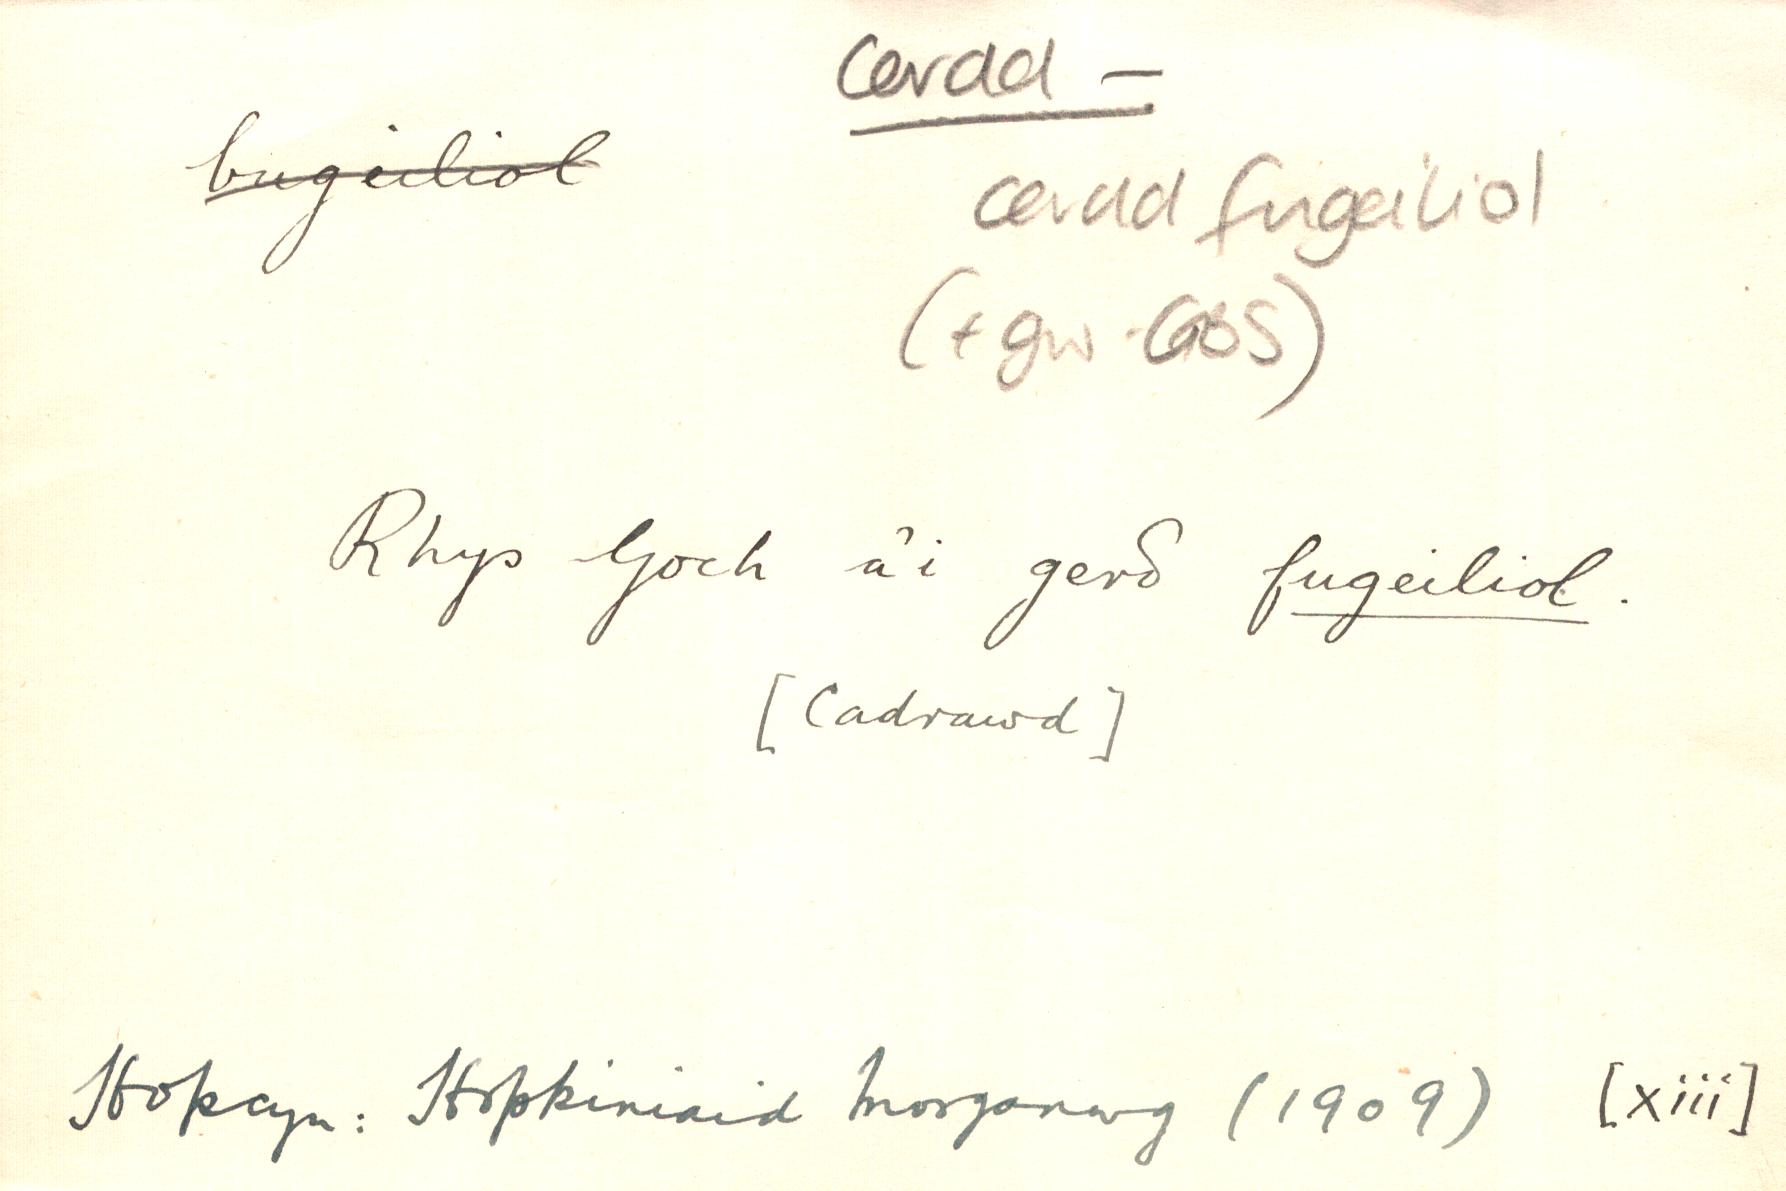 cerdd –
bugeiliol
cerdd fugeiliol
(+ gw. GBS)
Rhys Goch a'i gerδ fugeiliol.
[Cadrawd]
Hopcyn: Hopkiniaid Morganwg (1909) [xiii]